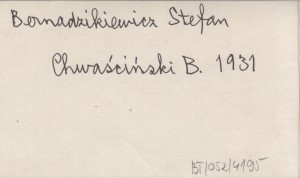 Bernadzikiewicz Stefan
Chwaściński B. 1931
BT/052/4195